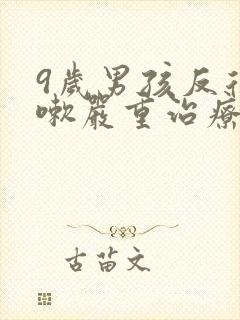 9歲男孩反復
嗽嚴重治療
古苗文